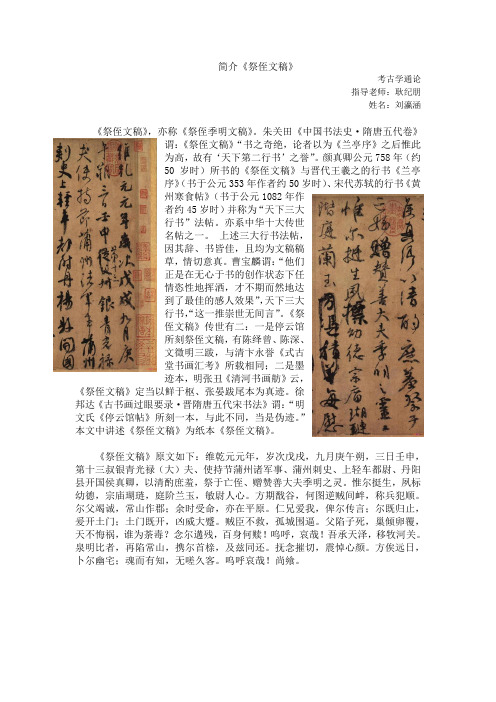 简介《祭侄文稿》
考古学通论
指导老师：耿纪朋
姓名：刘瀛涵
《祭侄文稿》，亦称《祭侄季明文稿》。朱关田《中国书法史·隋唐五代卷》
谓：《祭侄文稿》“书之奇绝，论者以为《兰亭序》之后惟此
为高，故有‘天下第二行书’之誉”。颜真卿公元 758 年（约
50 岁时）所书的《祭侄文稿》与晋代王羲之的行书《兰亭
序》（书于公元 353 年作者约 50 岁时）、宋代苏轼的行书《黄
州寒食帖》（书于公元 1082 年作
者约 45 岁时）并称为“天下三大
行书”法帖。亦系中华十大传世
名帖之一。 上述三大行书法帖，
因其辞、书皆佳，且均为文稿稿
草，情切意真。曹宝麟谓：“他们
正是在无心于书的创作状态下任
情恣性地挥洒，才不期而然地达
到了最佳的感人效果”，天下三大
行书，“这一推崇世无间言”。《祭
侄文稿》传世有二：一是停云馆
所刻祭侄文稿，有陈绎曾、陈深、
文徵明三跋，与清卞永誉《式古
堂书画汇考》所载相同；二是墨
迹本，明张丑《清河书画舫》云，
《祭侄文稿》定当以鲜于枢、张晏跋尾本为真迹。徐
邦达《古书画过眼要录·晋隋唐五代宋书法》谓：“明
文氏《停云馆帖》所刻一本，与此不同，当是伪迹。”
本文中讲述《祭侄文稿》为纸本《祭侄文稿》。
維乾元元年歲次戊戌九月庚
夫使持節蒲州諸軍事蒲州
刺史上輕車都尉丹楊縣開國
惟爾挺生夙標幼德宗廟瑚璉
階庭蘭玉
《祭侄文稿》原文如下：维乾元元年，岁次戊戌，九月庚午朔，三日壬申，
第十三叔银青光禄（大）夫、使持节蒲州诸军事、蒲州刺史、上轻车都尉、丹阳
县开国侯真卿，以清酌庶羞，祭于亡侄、赠赞善大夫季明之灵。惟尔挺生，夙标
幼德，宗庙瑚琏，庭阶兰玉，敏尉人心。方期戬谷，何图逆贼间衅，称兵犯顺。
尔父竭诚，常山作郡；余时受命，亦在平原。仁兄爱我，俾尔传言；尔既归止，
爰开土门；土门既开，凶威大蹙。贼臣不救，孤城围逼。父陷子死，巢倾卵覆，
天不悔祸，谁为荼毒？念尔遘残，百身何赎！呜呼，哀哉！吾承天泽，移牧河关。
泉明比者，再陷常山，携尔首榇，及兹同还。抚念摧切，震悼心颜。方俟远日，
卜尔幽宅；魂而有知，无嗟久客。呜呼哀哉！尚飨。